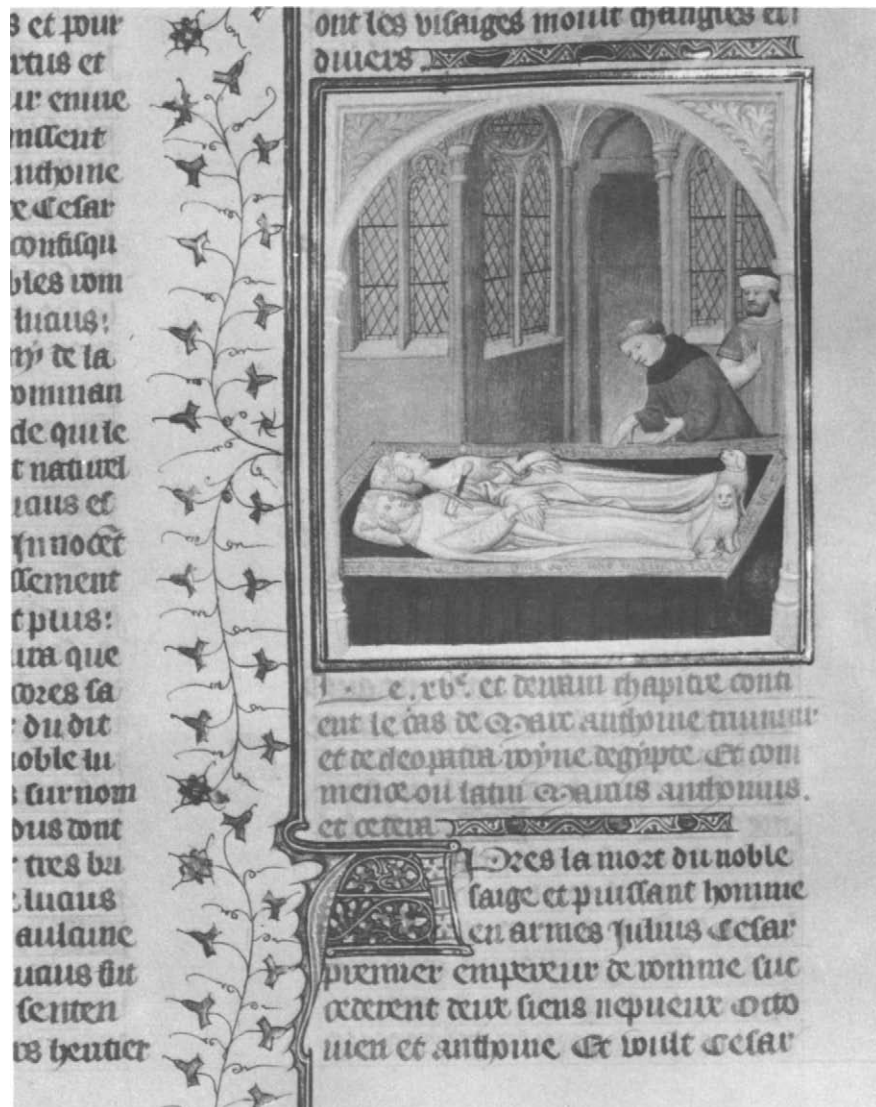 s et pour
rtus et
ur enuie
nissent
anthoine
re Cesar
confisqu
bles rom
lucius:
my de la
romman
de qui le
t naturel
ucius et
Innocẽt
issement
t plus:
ura que
cores sa
r du dit
noble lu
s surnom
dus dont
r tres bri
t lucius
aulcune
ucius fut
senten
rs heritier
ont les visaiges moult changies et
diuers
e .xvᵉ. et derrain chapitre conti
ent le cas de Marc anthoine triumuir
et de cleopatra royne degypte Et com
mence ou latin Marcus anthonius.
et cetera
Apres la mort du noble
saige et puissant homme
en armes Julius Cesar
premier empereur de romme suc
cederent deux siens nepueux Octo
uien et anthoine Et voult Cesar